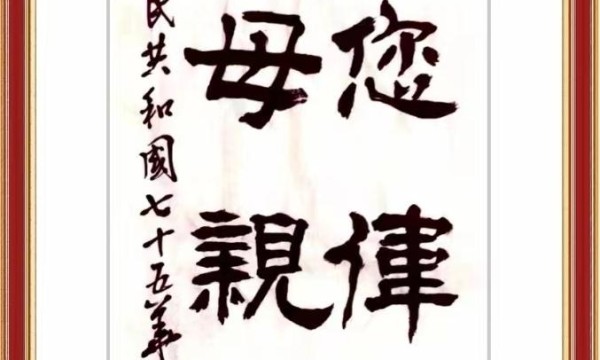 您偉
母親
民共和國七十五華